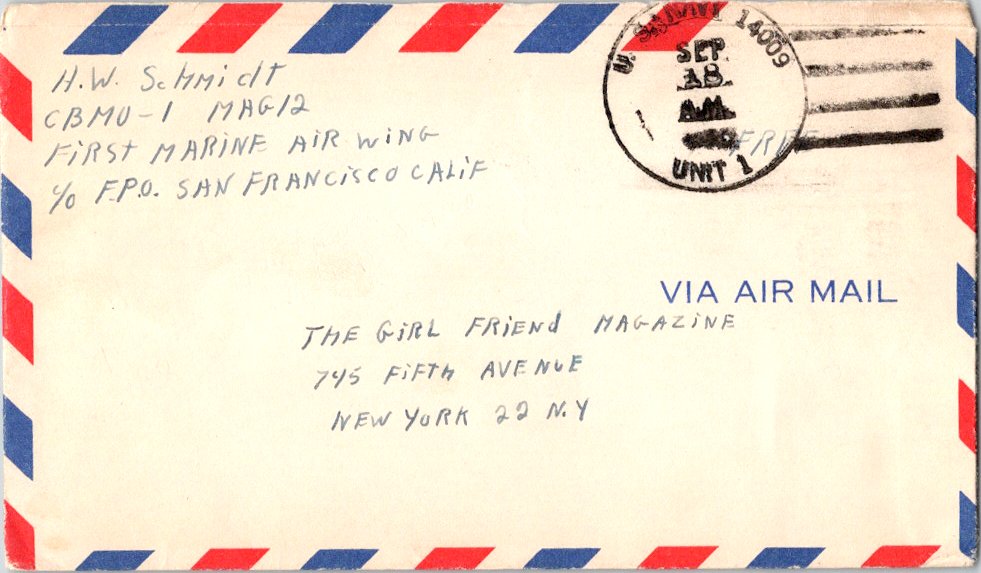 H.W. Schmidt
CBMU-1 MAG12
FiRST MARINE AiR WiNG
c/o F.P.O. SAN FRANCiSCO CALiF
U.S. NAVY 14009
SEP
18
A.M.
UNIT 1
FREE
VIA AIR MAIL
THE GiRL FRiENd MAGAZiNE
745 FiFTH AVENUE
NEW YORK 22 N.Y